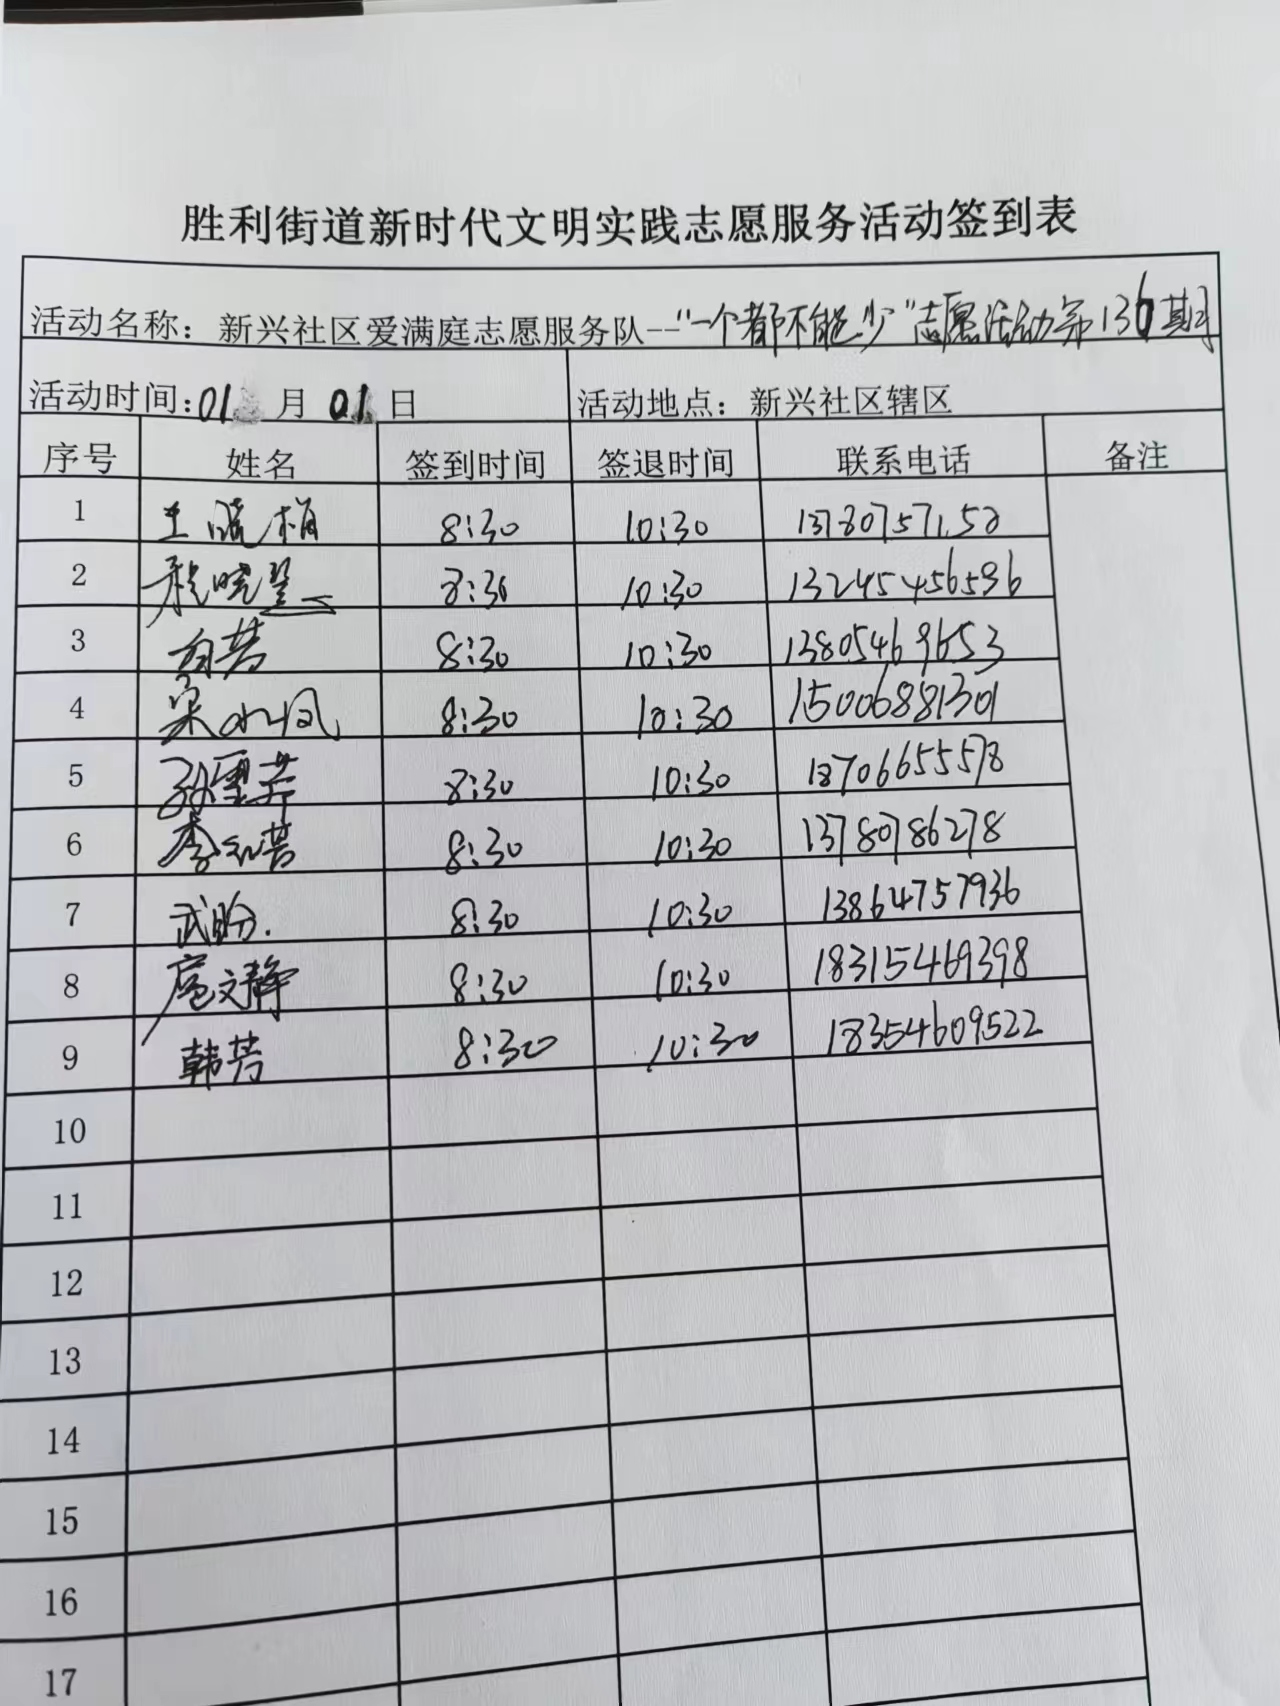 胜利街道新时代文明实践志愿服务活动签到表
活动名称：新兴社区爱满庭志愿服务队--“一个都不能少”志愿活动第136期
活动时间：01月01日 活动地点：新兴社区辖区
序号 姓名 签到时间 签退时间 联系电话 备注
1 王晓梅 8:30 10:30 13780757152
2 程晓 8:30 10:30 13245456596
3 8:30 10:30 13805469653
4 宋水凤 8:30 10:30 15006881301
5 孙 8:30 10:30 18706655578
6 李红芸 8:30 10:30 13780786278
7 武盼. 8:30 10:30 13864757936
8 扈文静 8:30 10:30 18315469398
9 韩芳 8:30 10:30 18354609522
10
11
12
13
14
15
16
17